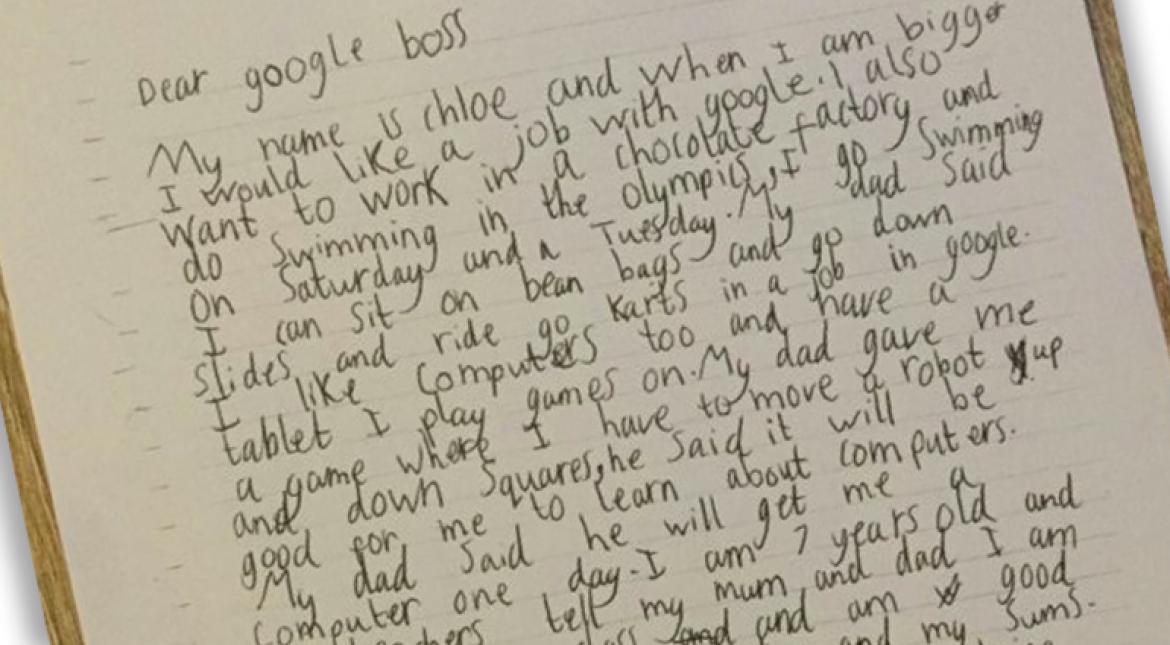 Dear google boss
My name is chloe and when I am bigger
I would like a job with google. I also
want to work in a chocolate factory and
do swimming in the olympics, I go Swimming
on Saturday and a Tuesday. My dad said
I can sit on bean bags and go down
slides and ride go karts in a job in google.
I like computers too and have a
tablet I play games on. My dad gave me
a game where I have to move a robot up
and down squares, he said it will be
good for me to learn about computers.
My dad said he will get me a
computer one day. I am 7 years old and
tell my mum and dad I am
and and am good
and my sums.